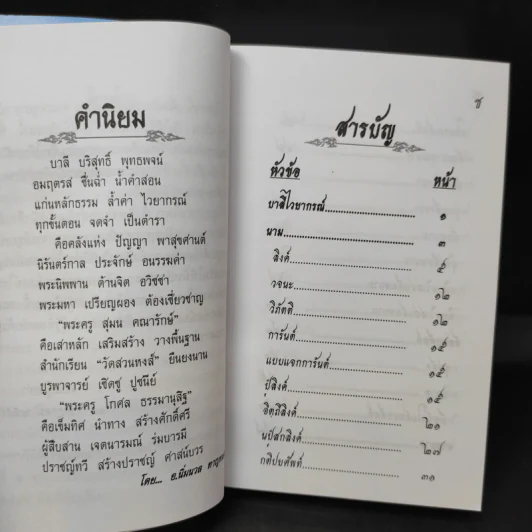 คำนิยม
บาลี บริสุทธิ์ พุทธพจน์
อมฤตรส ชื่นฉ่ำ น้ำคำสอน
แก่นหลักธรรม ล้ำค่า ไวยากรณ์
ทุกขั้นตอน จดจำ เป็นตำรา
คือคลังแห่ง ปัญญา พาสุขศานต์
นิรันดร์กาล ประจักษ์ อนรรฆค่า
พระนิพพาน ด้านจิต อวิชชา
พระมหา เปรียญผอง ต้องเชี่ยวชาญ
"พระครู สุมน คณารักษ์"
คือเสาหลัก เสริมสร้าง วางพื้นฐาน
สำนักเรียน "วัดสวนหงส์" ยืนยงนาน
บูรพาจารย์ เชิดชู ปูชนีย์
"พระครู โกศล ธรรมานุสิฐ"
คือเข็มทิศ นำทาง สร้างศักดิ์ศรี
ผู้สืบสาน เจตนารมณ์ ร่มบารมี
ปราชญ์ทวี สร้างปราชญ์ ศาสน์บวร
โดย... อ.นิ่มนวล
ซ
สารบัญ
หัวข้อ หน้า
บาลีไวยากรณ์ ๑
นาม ๓
ลิงค์ ๕
วจนะ ๑๒
วิภัตติ ๑๒
การันต์ ๑๕
แบบแจกการันต์ ๑๕
ปุํลิงค์ ๑๕
อิตฺถีลิงค์ ๒๑
นปุํสกลิงค์ ๒๗
กติปยศัพท์ ๓๑